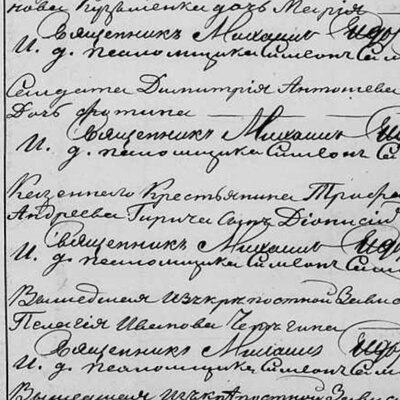 нова Кузьменка дочь Марія
Священникъ Михаилъ
И. д. псаломщика Симеонъ
Солдата Димитрія Антонова
Дочь Фотина
Священникъ Михаилъ
И. д. псаломщика Симеонъ
Казеннаго Крестьянина
Андреева сынъ Діонисій
Священникъ Михаилъ
И. д. псаломщика Симеонъ
Вышедшая изъ крѣпостной
Пелагія Иванова
Священникъ Михаилъ
И. д. псаломщика Симеонъ
Вышедшая изъ крѣпостной